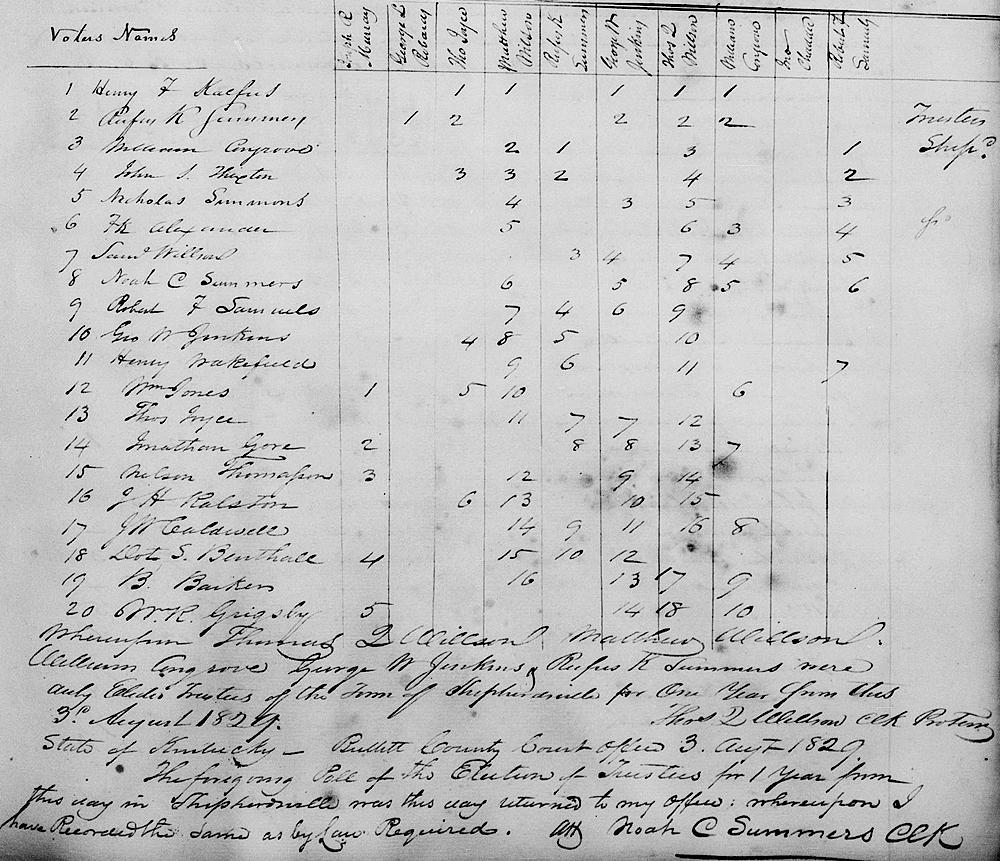 Voters Names Joseph R Murray George L Tho Joyce Matthew Wilson Rufus K Summers George W Jenkins Thos Q Wilson William Cosgrove Jno Robert F Samuels
1 Henry F Kalfus 1 1 1 1 1
2 Rufus K Summers 1 2 2 2 2 Trustees
3 William Cosgrove 2 1 3 1 Shepd
4 John S. Thixton 3 3 2 4 2
5 Nicholas Simmons 4 3 5 3
6 Fk Alexander 5 6 3 4
7 Saml Willson 3 4 7 4 5
8 Noah C Summers 6 5 8 5 6
9 Robert F Samuels 7 4 6 9
10 Geo W Jenkins 4 8 5 10
11 Henry Wakefield 9 6 11 7
12 Wm Jones 1 5 10 6
13 Thos Joyce 11 7 7 12
14 Jonathan Gore 2 8 8 13 7
15 Nelson Thomasson 3 12 9 14
16 J H Ralston 6 13 10 15
17 J W Caldwell 14 9 11 16 8
18 Dot S. Benthall 4 15 10 12
19 B. Barker 16 13 17 9
20 W. R. Grigsby 5 14 18 10
Whereupon Thomas Q Willson Matthew Willson.
William Cosgrove George W Jenkins & Rufus K Summers were
duly Elected Trustees of the Town of Shepherdsville for One Year from this
3d August 1829. Thos Q Willson Clk Protem
State of Kentucky - Bullitt County Court office 3. Augt 1829
The foregoing Poll of the Election of Trustees for 1 Year from
this day in Shepherdsville was this day returned to my office: whereupon I
have Recorded the same as by Law Required. Att Noah C Summers Clk